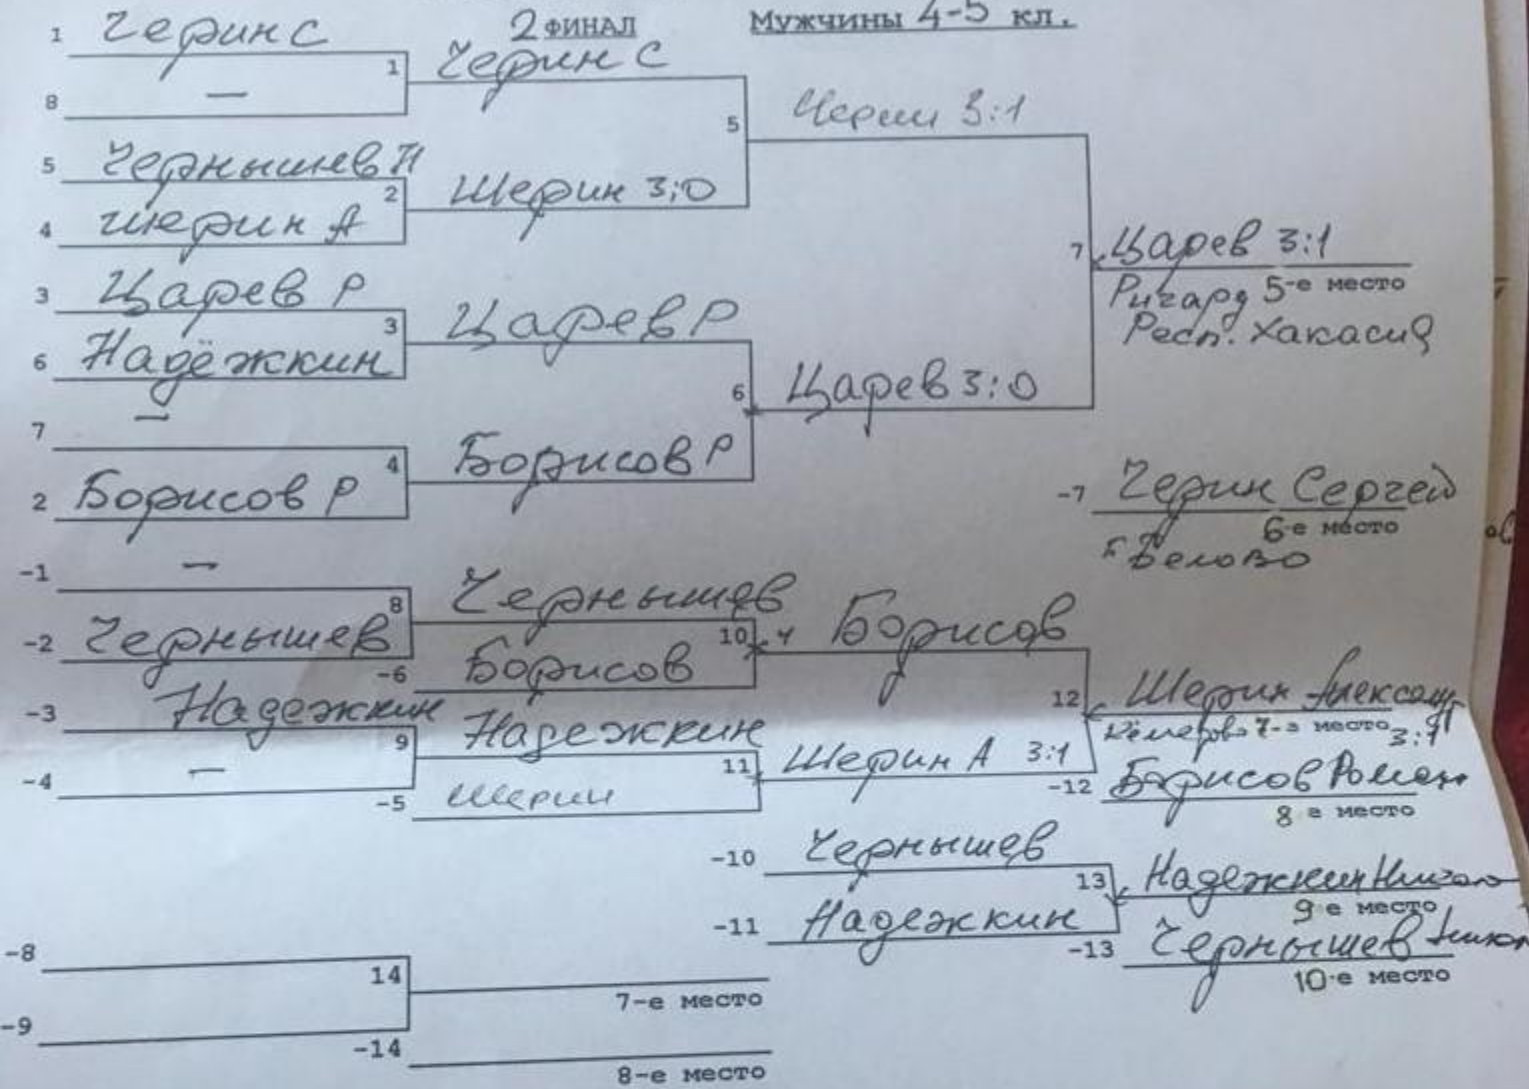 2 ФИНАЛ Мужчины 4-5 кл.
1 Черин С
8 —
1 Черин С
5 Чернышев Н
4 Шерин А
2 Шерин 3:0
5 Черин 3:1
3 Царев Р
6 Надёжкин
3 Царев Р
7 —
2 Борисов Р
4 Борисов Р
6 Царев 3:0
7 Царев 3:1
5-е место
Ричард
Респ. Хакасия
-7 Черин Сергей
6-е место
г Белово
-1 —
-2 Чернышев
8 Чернышев
-6 Борисов
10 Борисов
-3 Надежкин
-4 —
9 Надежкин
-5 Шерин
11 Шерин А 3:1
12 Шерин
Кемерово 7-е место 3:1
-12 Борисов Роман
8 е место
-10 Чернышев
-11 Надежкин
13 Надежкин
9-е место
-13 Чернышев
10-е место
-8
-9
14
7-е место
-14
8-е место